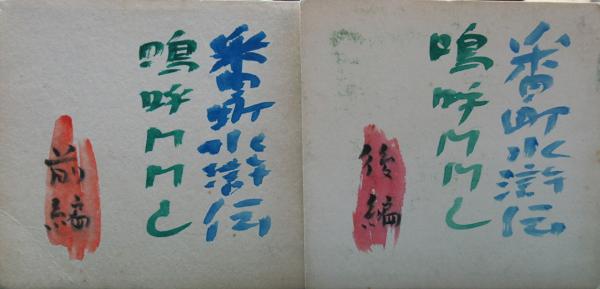 番町水滸伝
嗚呼MMC
前編
番町水滸伝
嗚呼MMC
後編